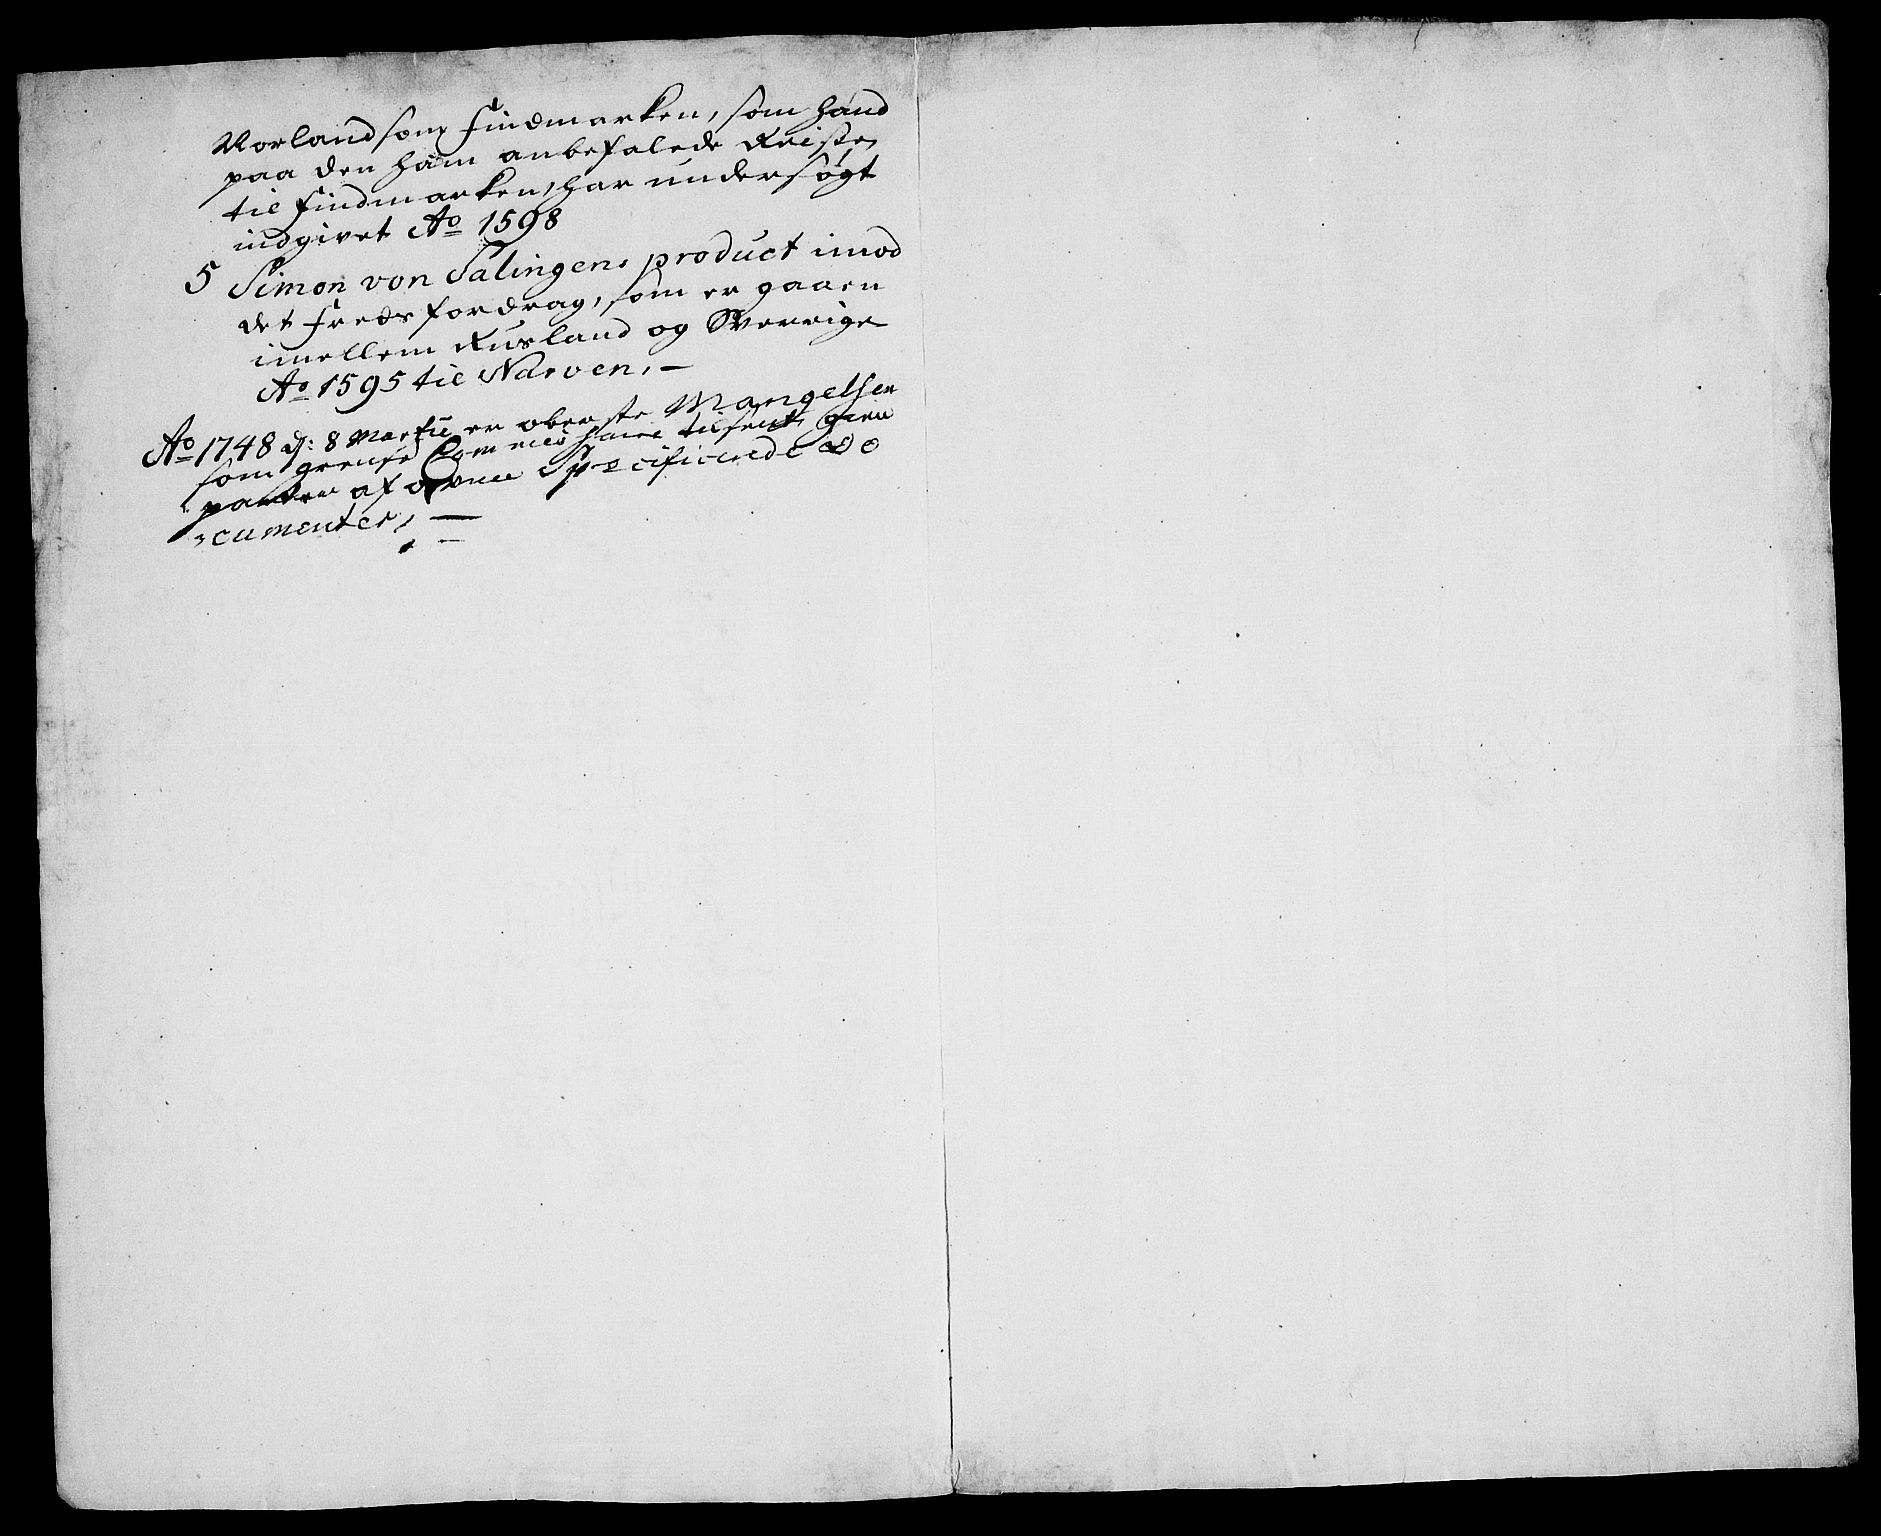 Norland som Findmarken, som hand
paa den ham anbefalede Reise
til Findmarken, har undersøgt
indgivet Ao 1598
5 Simon von Salingens product imod
det Freds fordrag, som er gaaen
imellem Rusland og Sverrige
Ao 1595 til Narven. –
Ao 1748 d: 8 Martii er oberste Mangelsen
som grense Commiss haire tilsent gien
parter af ovenn Specificerede Do
cumenter, —